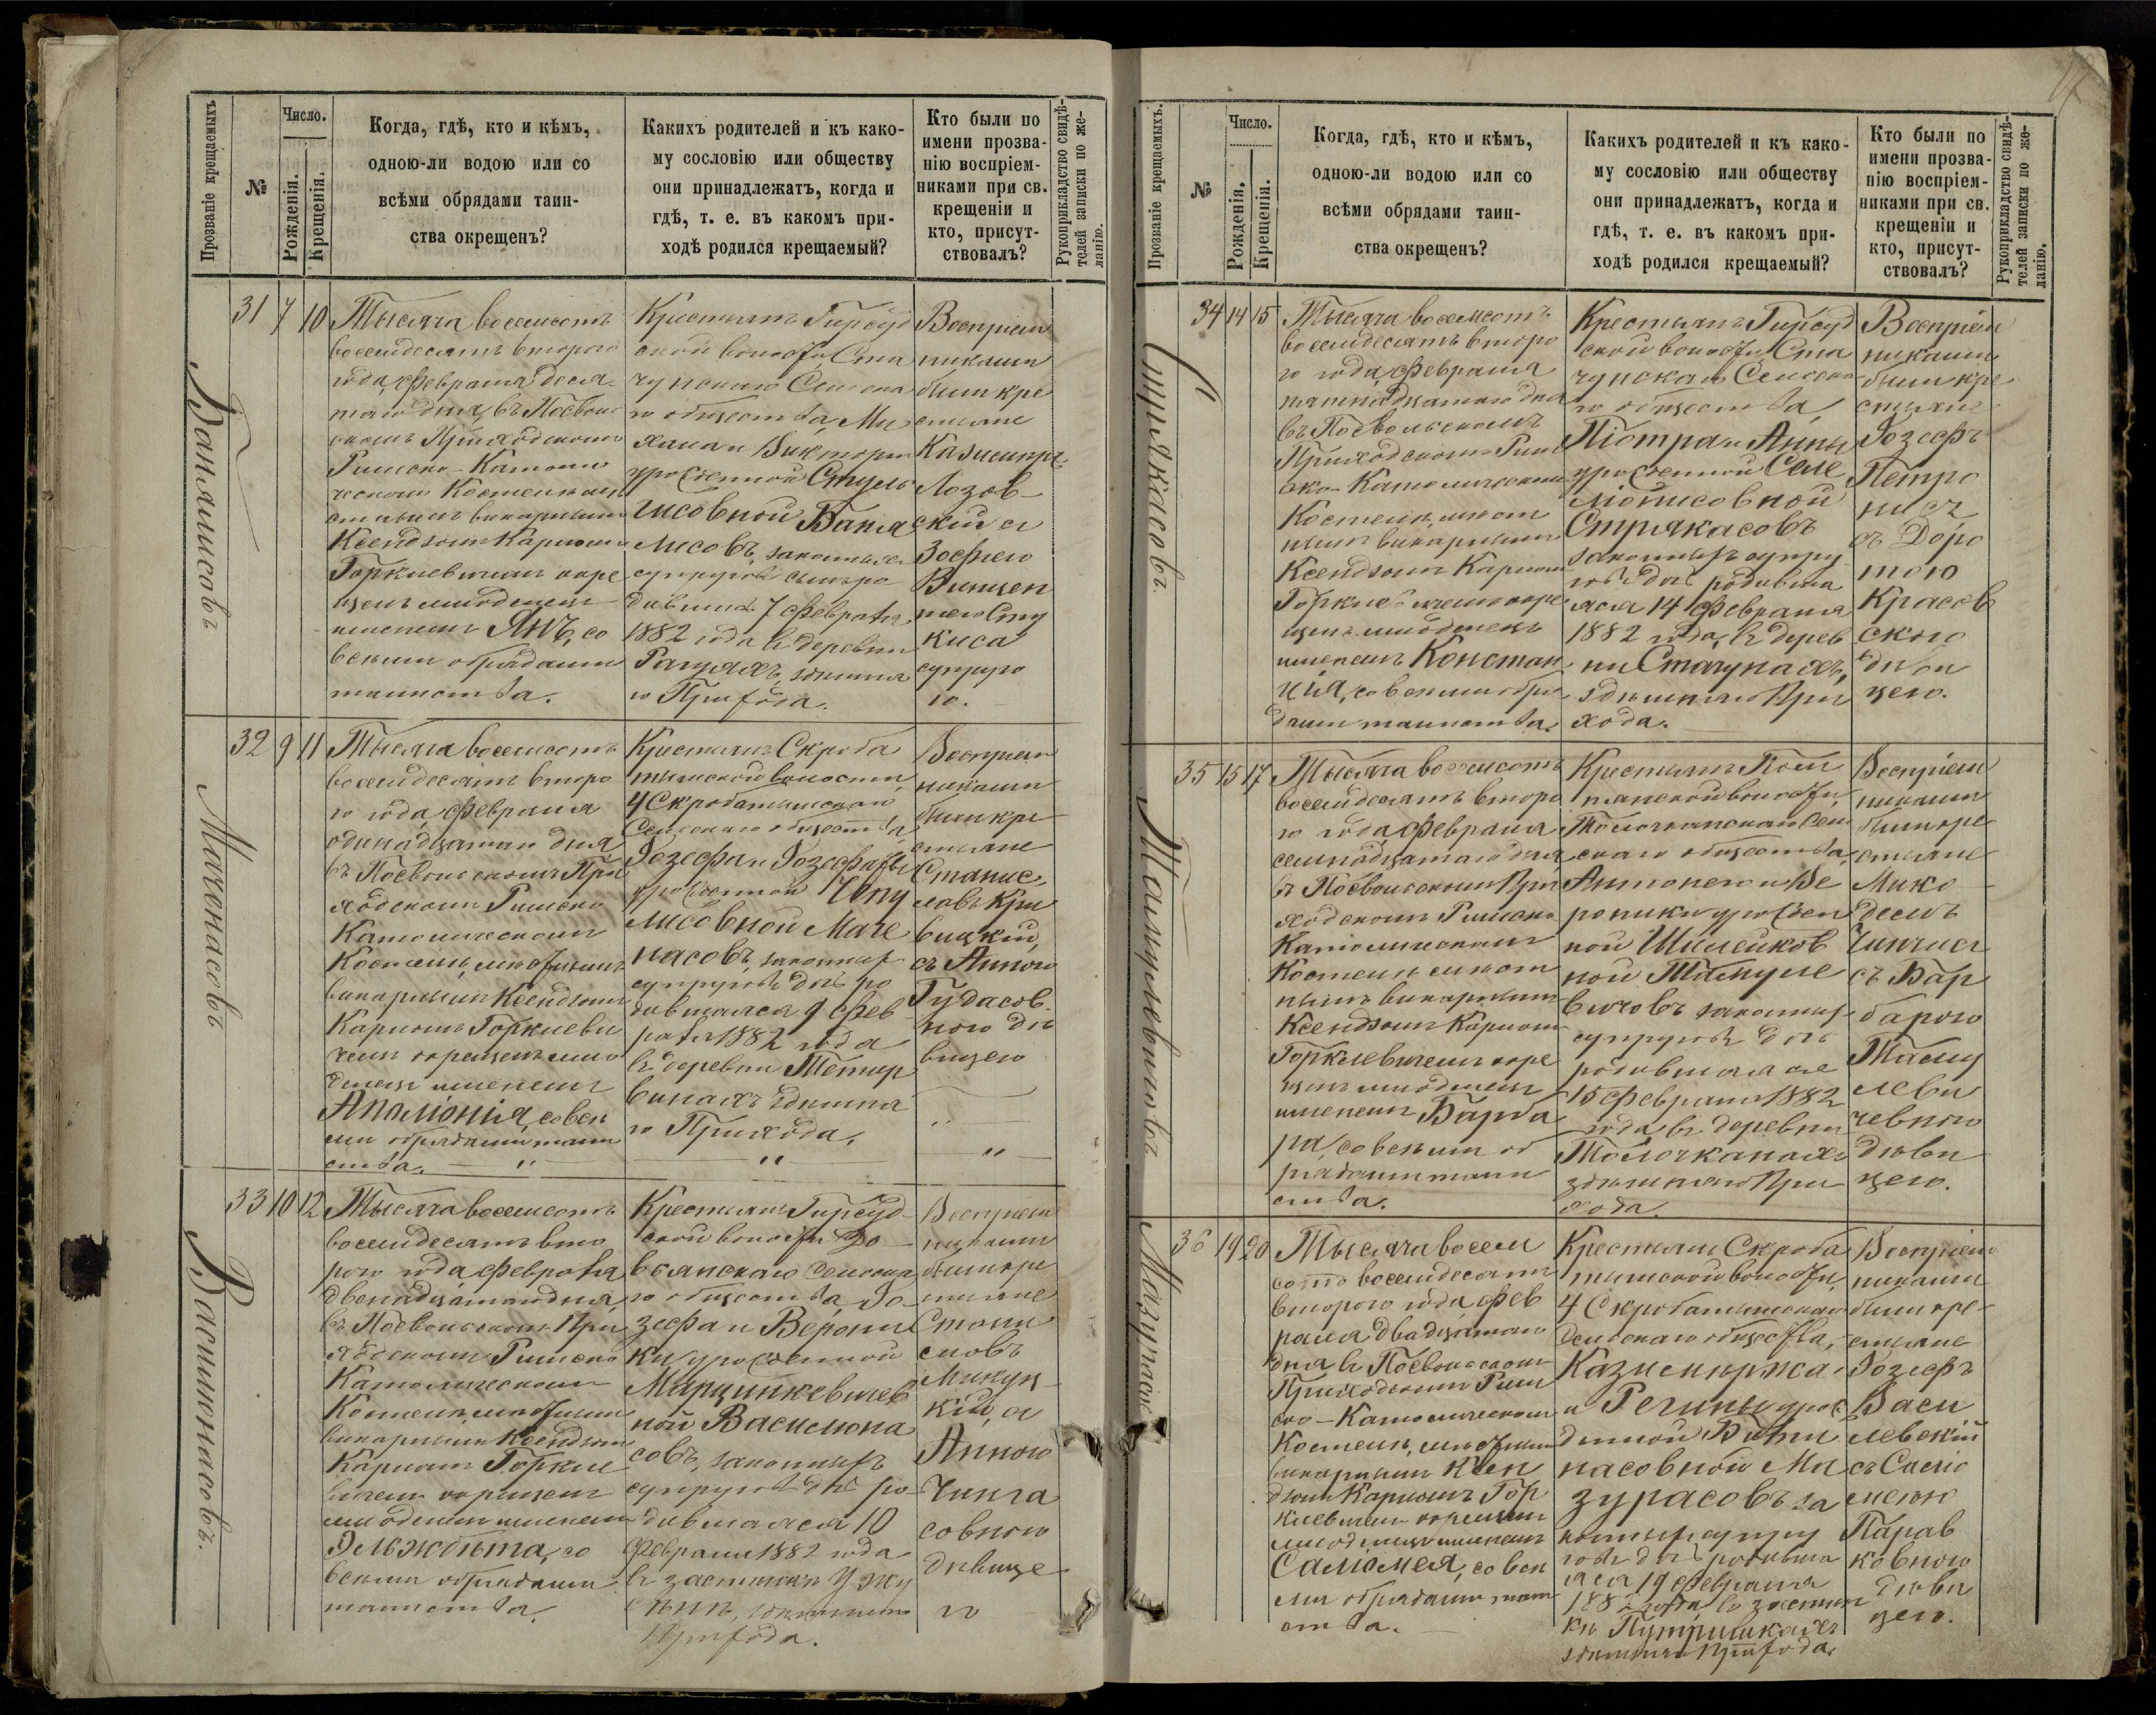 Прозваніе крещаемыхъ
№
Число.
Рожденія.
Крещенія.
Когда, гдѣ, кто и кѣмъ,
одною-ли водою или со
всѣми обрядами таин-
ства окрещенъ?
Какихъ родителей и къ како-
му сословію или обществу
они принадлежатъ, когда и
гдѣ, т. е. въ какомъ при-
ходѣ родился крещаемый?
Кто были по
имени прозва-
нію воспріем-
никами при св.
крещеніи и
кто, присут-
ствовалъ?
Рукоприкладство свидѣ-
телей записки по же-
ланію.
Банялисовъ
31 7 10
Тысяча восемьсотъ
восемдесятъ втораго
года, февраля деся-
таго дня, въ Посволь
скомъ Приходскомъ
Римско-Католи
ческомъ Костелѣ, мѣ
стнымъ викарнымъ
Ксендзомъ Каролемъ
Горкевичемъ окре
щенъ младенецъ
именемъ Янъ, со
всѣми обрядами
таинства.
Крестьянъ Гирсуд
ской волости, Ста
чунскаго Сельска
го общества, Ми
хала и Виктори
урожденной Стуль
гисовной Баня
лисовъ, законныхъ
супруговъ сынъ ро
дившійся 7 февраля
1882 года въ деревни
здѣшня
го Прихода.
Воспріем
никами
были кре
стьяне
Казимиръ
Лозов-
скій съ
Зофіею
Винцен
таго Сту
киса
супруго
ю.
Маченасовъ
32 9 11
Тысяча восемьсотъ
восемдесятъ второ
го года, февраля
одинадцатаго дня
въ Посвольскомъ При
ходскомъ Римско
Католическомъ
Костелѣ, мѣстнымъ
викарнымъ Ксендзомъ
Каролемъ Горкеви
чемъ окрещенъ мла
денецъ именемъ
Аполіонія, со всѣ
ми обрядами таин
ства.
Крестьянъ Скроба
тишской волости,
4 Скробатишскаго
Сельскаго общества,
Іозефа и Іозефаты
урожденной Чепу
лисовной Маче
насовъ, законныхъ
супруговъ дочь ро
дившаяся 9 фев
раля 1882 года
въ деревни Тетир
винахъ здѣшня
го Прихода.
Воспріем
никами
были кре
стьяне
Станис
лавъ Кри
вицкій,
съ Анною
Гудасов
ною дѣ
вицею
Василюнасовъ.
33 10 12
Тысяча восемьсотъ
восемдесятъ вто
рого года февраля
двенадцатаго дня,
въ Посвольскомъ При
ходскомъ Римско
Католическомъ
Костелѣ, мѣстнымъ
викарнымъ Ксендзомъ
Каролемъ Горкев
ичемъ окрещенъ
младенецъ именемъ
Эльжбѣта, со
всѣми обрядами
таинства.
Крестьянъ Гирсуд-
ской волости До
всянскаго Сельска
го общества Іо-
зефа и Верони
ки, урожденной
Марцинкевичев
ной Василюна
совъ, законныхъ
супруговъ дочь ро-
дившаяся 10
февраля 1882 года
въ застѣнкѣ Ужу
здѣшняго
Прихода.
Воспріем
никами
были кре
стьяне
Стани
славъ
Микуц
кій, съ
Анною
Чинга
совною
дѣвице
ю
Прозваніе крещаемыхъ.
№
Число.
Рожденія.
Крещенія.
Когда, гдѣ, кто и кѣмъ,
одною-ли водою или со
всѣми обрядами таин-
ства окрещенъ?
Какихъ родителей и къ како-
му сословію или обществу
они принадлежатъ, когда и
гдѣ, т. е. въ какомъ при-
ходѣ родился крещаемый?
Кто были по
имени прозва-
нію воспріем-
никами при св.
крещеніи и
кто, присут-
ствовалъ?
Рукоприкладство свидѣ-
телей записки по же-
ланію.
Стрякасовъ.
34 14 15
Тысяча восемьсотъ
восемдесятъ второ
го года, февраля
пятнадцатаго дня
въ Посвольскомъ
Приходскомъ Рим
ско-Католическомъ
Костелѣ, мѣст
нымъ викарнымъ
Ксендзомъ Каролемъ
Горкевичемъ окре
щенъ младенецъ
именемъ Констан
ція, со всѣми обря
дами таинства.
Крестьянъ Гирсуд
ской волости, Ста
чунскаго Сельска
го общества,
Піотра и Анны
урожденной Селе
мойтисовной
Стрякасовъ
законныхъ супру
говъ дочь родивша
яся 14 февраля
1882 года, въ дерев
ни Стачунахъ,
здѣшняго При
хода.
Воспріем
никами
были кре
стьяне
Іозефъ
Петро
нисъ
съ Доро
тою
Красов
ского
дѣви
цею.
Тамулевичовъ
35 15 17
Тысяча восемьсотъ
восемдесятъ второ
го года, февраля
семнадцатаго дня
въ Посвольскомъ При
ходскомъ Римско
Католическомъ
Костелѣ мѣст
нымъ викарнымъ
Ксендзомъ Каролемъ
Горкевичемъ окре
щенъ младенецъ
именемъ Барба
ра, со всѣми об
рядами таин
ства.
Крестьянъ Помп
янской волости,
Толочканскаго Сель
скаго общества,
Антонего и Ве
роники урожден
ной Шилейков
ной Тамуле
вичовъ законныхъ
супруговъ дочь
родившаяся
15 февраля 1882
года, въ деревни
Толочканахъ
здѣшняго При
хода.
Воспріем
никами
были кре
стьяне
Мико
демъ
Чингисъ
съ Бар
барою
Таму
леви
чевною
дѣви
цею.
Мазурасовъ
36 19 20
Тысяча восемь
сотъ восемдесятъ
второго года, фев
раля двадцатаго
дня въ Посвольскомъ
Приходскомъ Рим
ско-Католическомъ
Костелѣ, мѣстнымъ
викарнымъ Ксен
дзомъ Каролемъ Гор
кевичемъ окрещенъ
младенецъ именемъ
Саломея, со всѣ
ми обрядами таин
ства.
Крестьянъ Скроба
тишской волости,
4 Скробатишскаго
Сельскаго общества,
Казимиржа
и Регины урож
денной
насовной Ма
зурасовъ за
конныхъ супру
говъ дочь родивша
яся 19 февраля
1882 года въ застѣн
кѣ Путришкахъ
здѣшняго Прихода.
Воспріем
никами
были кре
стьяне
Іозефъ
Васи
левскій
съ Сало
меею
Парав
ковною
дѣви
цею.